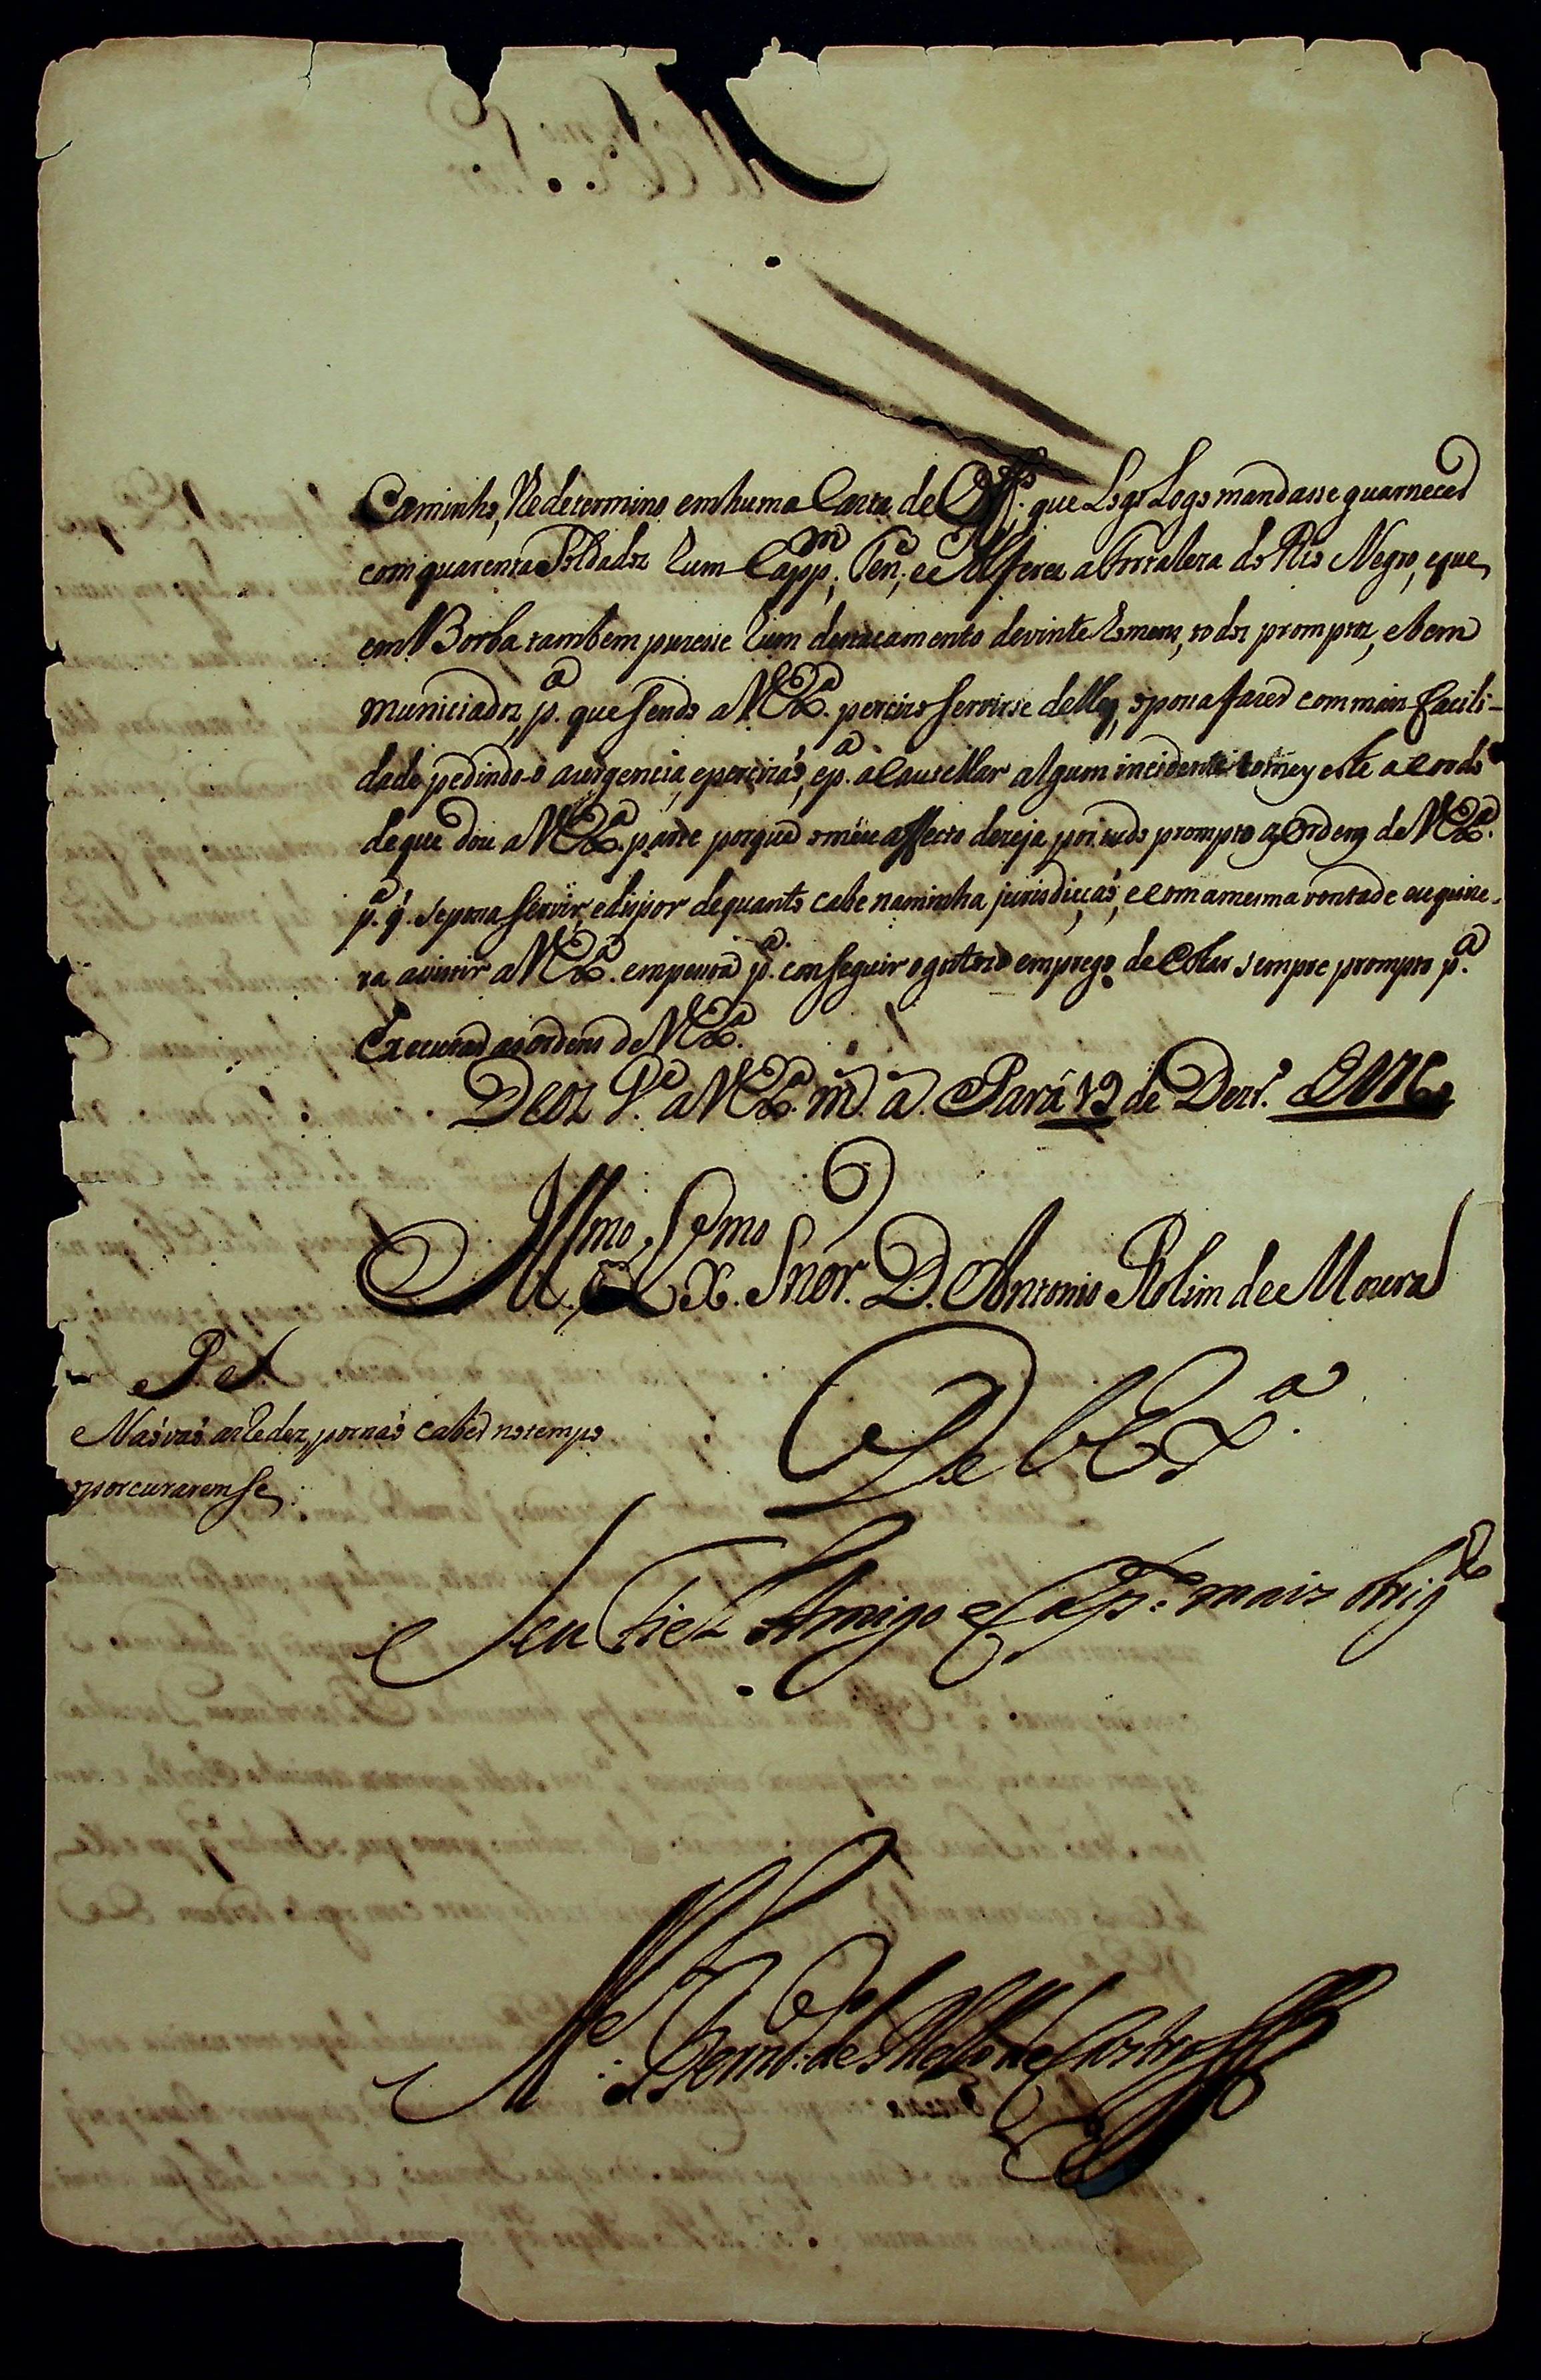 Caminho, lhe determino em huma Carta de Off.º que Logo Logo mandasse guarnecer
com quarenta Soldados hum Capp.m, Ten.e, e Alferes a Fortaleza do Rio Negro, e que
em Borba tambem puzesse hum destacamento de vinte homens, todos promptos, e bem
municiados, p.a que sendo a V. Ex.a percizo servirse delles, o possa fazer com mais facili-
dade pedindo-o a urgencia, e percizaõ, e p.a acautellar algum incidente tomey este acordo
de que dou a V. Ex.a parte porque o meu affecto dezeja pôr tudo prompto ás Ordens de V. Ex.a
p.a q̃ se possa servir, e dispor de quanto cabe na minha jurisdicçaõ, e com a mesma vontade eu quize-
ra assistir a V. Ex.a em pessoa p.a conseguir o gostozo emprego de estar sempre prompto p.a
Executar as ordens de V. Ex.a
Deos G.e a V. Ex.a m. a. Pará 12 de Dezr.º
Ill.mo, e Ex.mo Snõr. D. Antonio Rolim de Moura
P S
Naõ vaõ as Redes, por naõ caber no tempo
o porcurarem se
De V. Ex.a
Seu Fiel Amigo e Cap.º mais obrig.do
M.el Bern.do de Mello de Castro